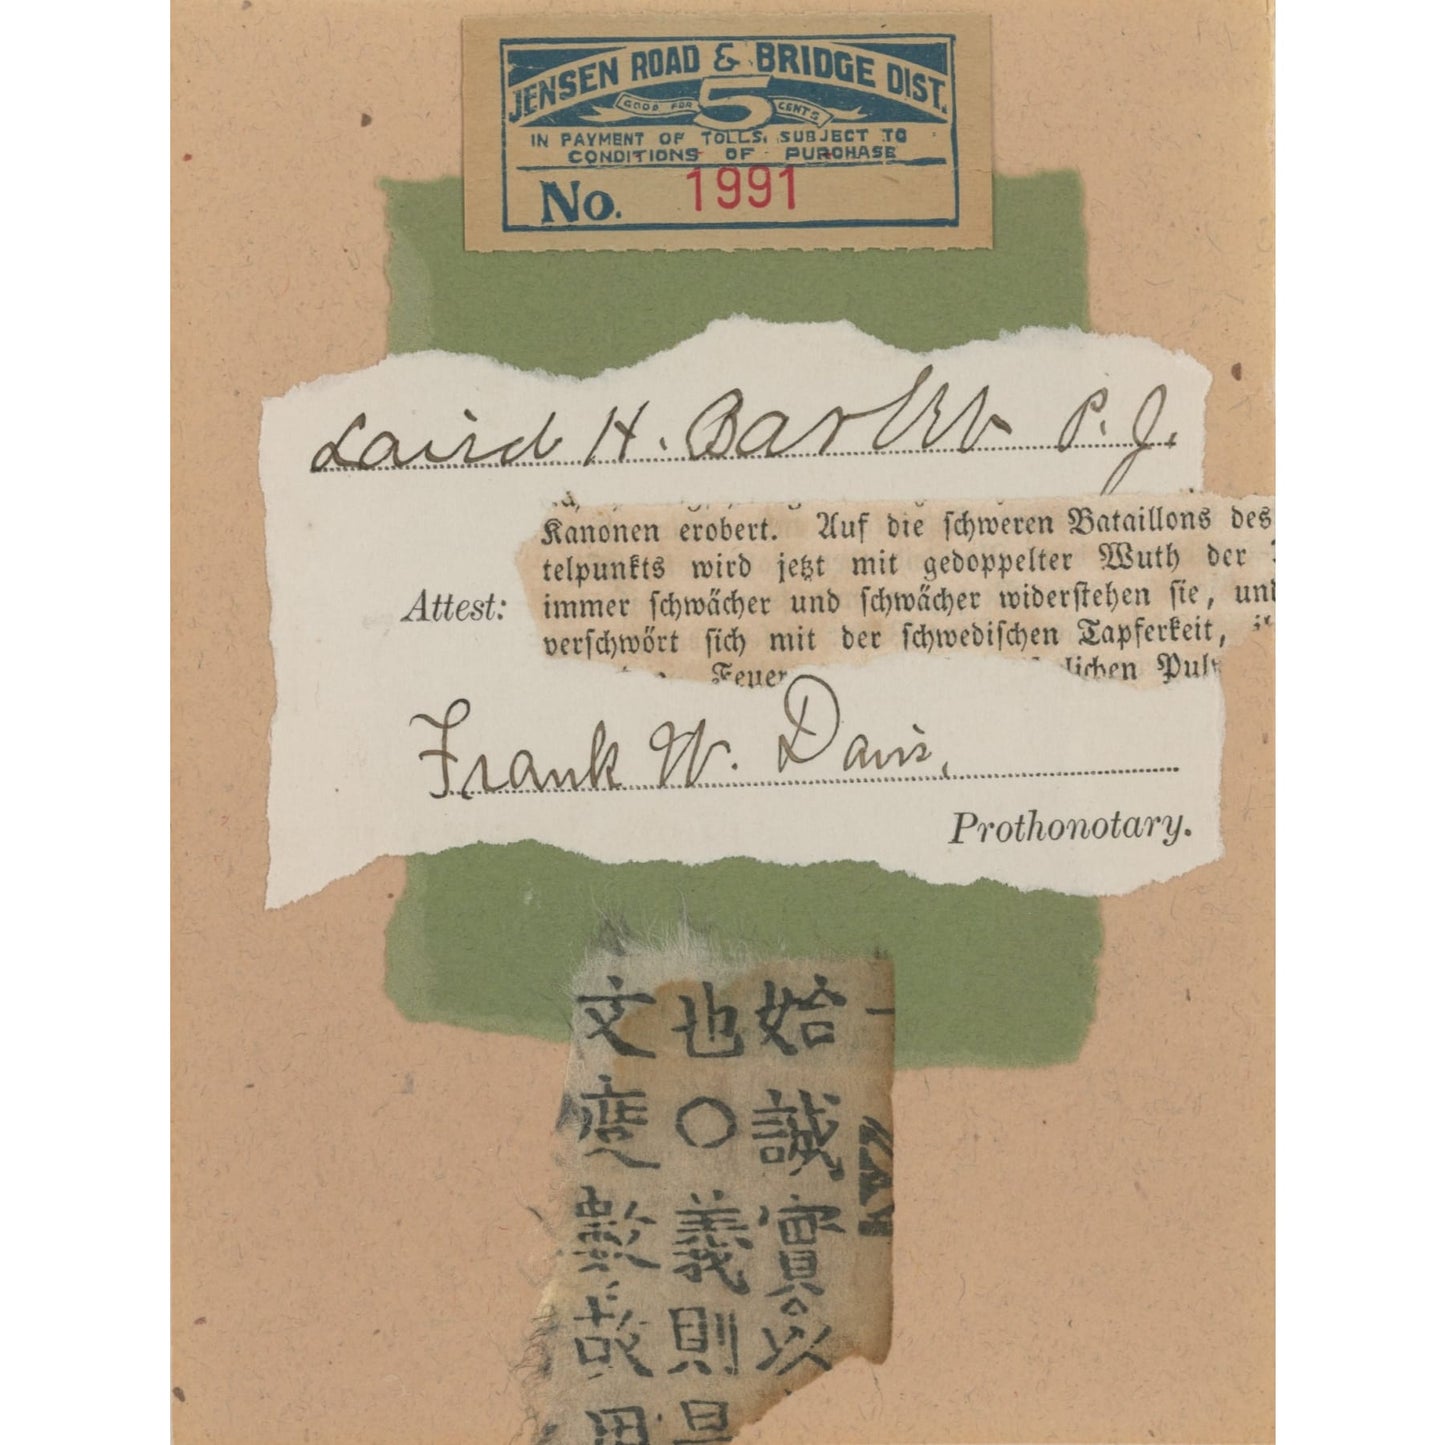 JENSEN ROAD & BRIDGE DIST.
GOOD FOR 5 CENTS
IN PAYMENT OF TOLLS, SUBJECT TO
CONDITIONS OF PURCHASE
No. 1991
Laird H. Bartlett P. J.
Kanonen erobert. Auf die schweren Bataillons des
telpunkts wird jetzt mit gedoppelter Wuth der
immer schwächer und schwächer widerstehen sie, und
verschwört sich mit der schwedischen Tapferkeit,
Feuer lichen Pulv
Attest:
Frank W. Davis,
Prothonotary.
始誠實以
也○義則
文